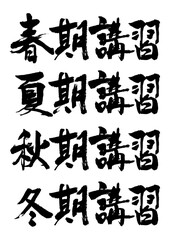 春期講習
夏期講習
秋期講習
冬期講習